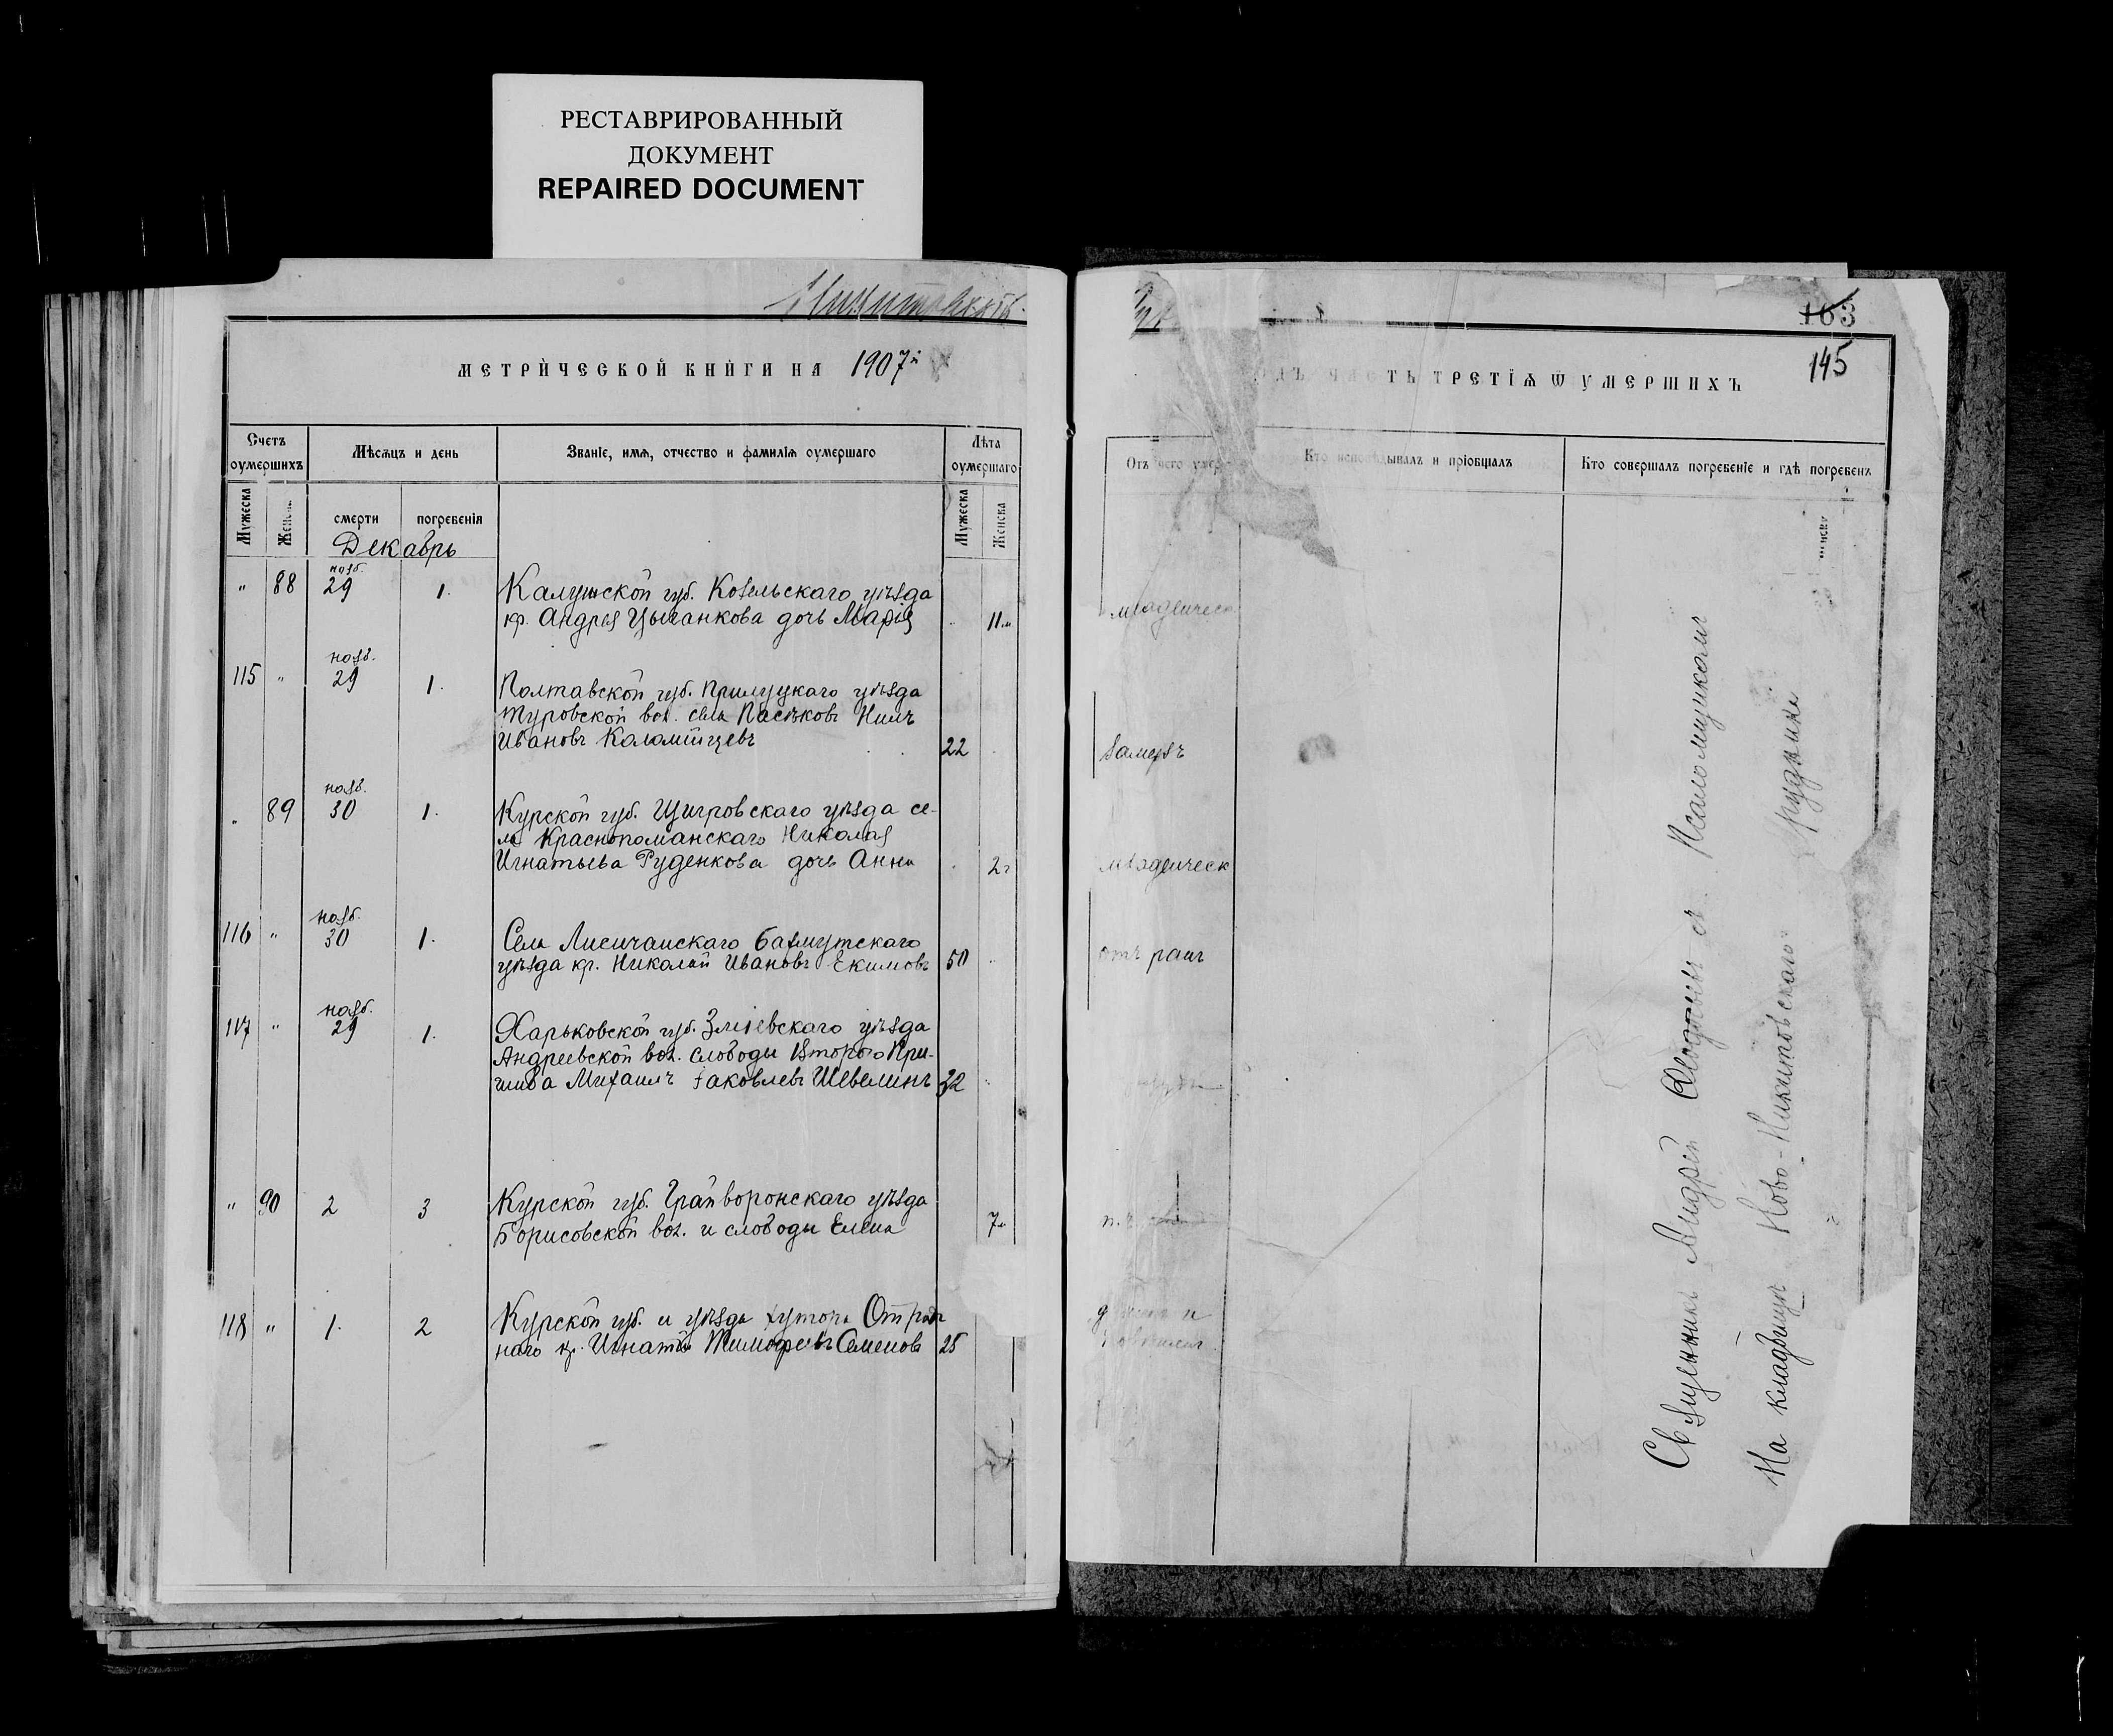 РЕСТАВРИРОВАННЫЙ
ДОКУМЕНТ
REPAIRED DOCUMENT
МЕТРИЧЕСКОЙ КНИГИ НА 1907й
Счетъ оумершихъ
Мѣсѧцъ и день
Званіе, имѧ, отчество и фамиліѧ оумершаго
Лѣта оумершаго
Мужеска
Женска
смерти
погребенія
Мужеска
Женска
Декабрь
" 88 нояб. 29 1. Калужской губ. Козельскаго уѣзда
кр. Андрея Цыганкова дочь Марія 11м
115 " нояб. 29 1. Полтавской губ. Прилуцкаго уѣзда
Туровской вол. села Пасѣковъ Нилъ
Ивановъ Коломійцевъ 22
" 89 нояб. 30 1. Курской губ. Щигровскаго уѣзда се-
ла Николая
Игнатьева Руденкова дочь Анна 2г
116 " нояб. 30 1. Села Лисичанскаго Бахмутскаго
уѣзда кр. Николай Ивановъ Екимовъ 50
117 " нояб. 29 1. Харьковской губ. Зміевскаго уѣзда
Андреевской вол. слободы Второго При-
шиба Михаилъ Іаковлевъ Шевелинъ 32
" 90 2 3 Курской губ. Грайворонскаго уѣзда
Борисовской вол. и слободы Елена 7м
118 " 1. 2 Курской губ. и уѣзда хутора Отрад-
наго кр. Игнатій Тимофеевъ Семеновъ 25
163
145
ЧАСТЬ ТРЕТІѦ Ѿ УМЕРШИХЪ
Отъ чего умеръ
Кто исповѣдывалъ и пріобщалъ
Кто совершалъ погребеніе и гдѣ погребенъ
младенческ
замерзъ
младенческ
отъ ранъ
Священникъ Андрей съ Псаломщикомъ
На кладбищѣ Ново-Никитовскаго рудника